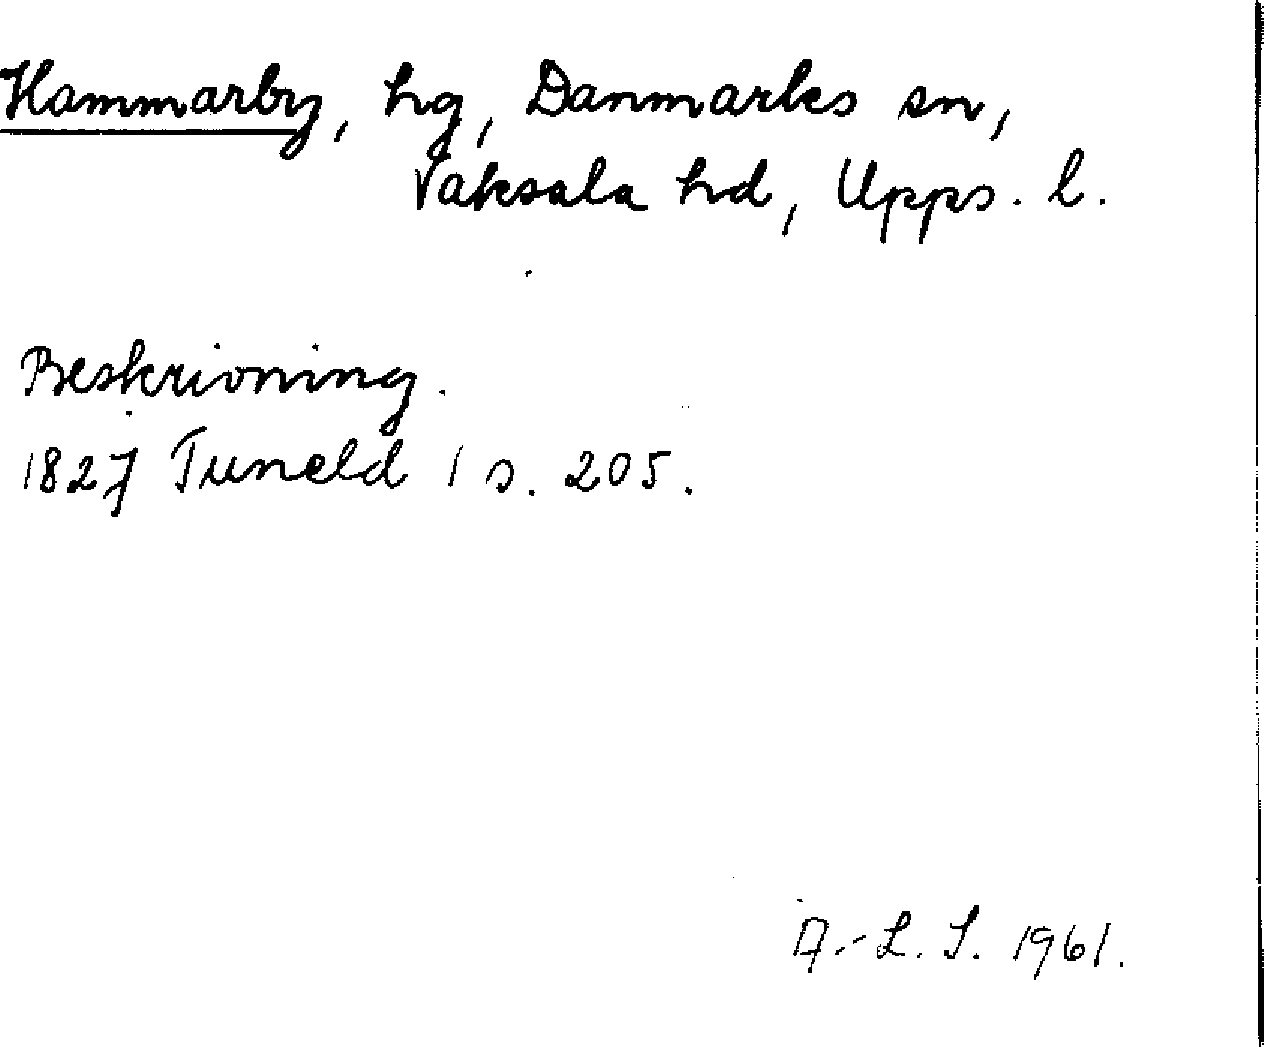 Hammarby, hg, Danmarks sn,
Vaksala hd, Upps. l.
Beskrivning.
1827 Tuneld 1 s. 205.
A.-L. S. 1961.